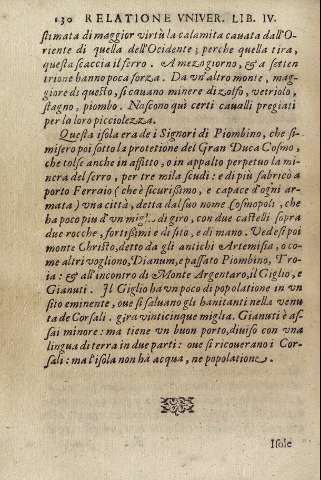 130 RELATIONE VNIVER. LIB. IV.
stimata di maggior virtù la calamita cauata dall'O-
riente di quella dell'Ocidente; perche quella tira,
questa scaccia il ferro. A mezogiorno, & a setten
trione hanno poca forza. Da vn'altro monte, mag-
giore di questo, si cauano minere di zolfo, vetriolo,
stagno, piombo. Nascono quì certi caualli pregiati
per la loro picciolezza.
Questa isola era de i Signori di Piombino, che si-
misero poi sotto la protetione del Gran Duca Cosmo,
che tolse anche in affitto, o in appalto perpetuo la mi-
nera del ferro, per tre mila scudi: e di più fabricò a
porto Ferraio (che è sicurissimo, e capace d'ogni ar-
mata) vna città, detta dal suo nome Cosmopoli, che
ha poco piu d'vn mig!.. di giro, con due castelli sopra
due rocche, fortissimi e di sito, e di mano. Vedesi poi
monte Christo, detto da gli antichi Artemisia, o co-
me altri vogliono, Dianum, e passato Piombino, Tro-
ia: & all'incontro di Monte Argentaro, il Giglio, e
Gianuti. Il Giglio ha vn poco di popolatione in vn
sito eminente, oue si saluano gli habitanti nella venu
ta de Corsali. gira vinticinque miglia. Gianuti è as-
sai minore: ma tiene vn buon porto, diuiso con vna
lingua di terra in due parti: oue si ricouerano i Cor-
sali: ma l'isola non ha acqua, ne popolatione.
Isole